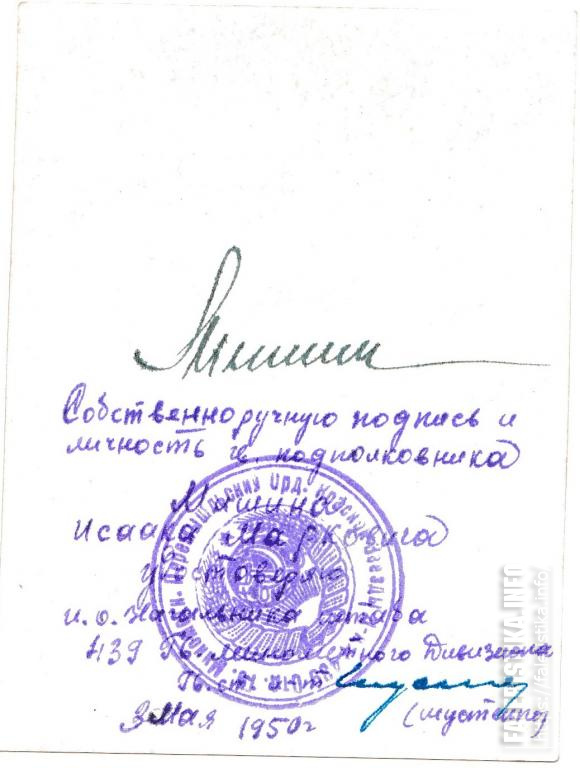 Мишин
Собственноручную подпись и
личность гв. подполковника
Мишина
Исаака Марковича
удостоверяю
и.о. начальника штаба
439 Гв. минометного Дивизиона
Гв. ст. л-т
3 мая 1950г
FALERISTIKA.INFO
https://faleristika.info/